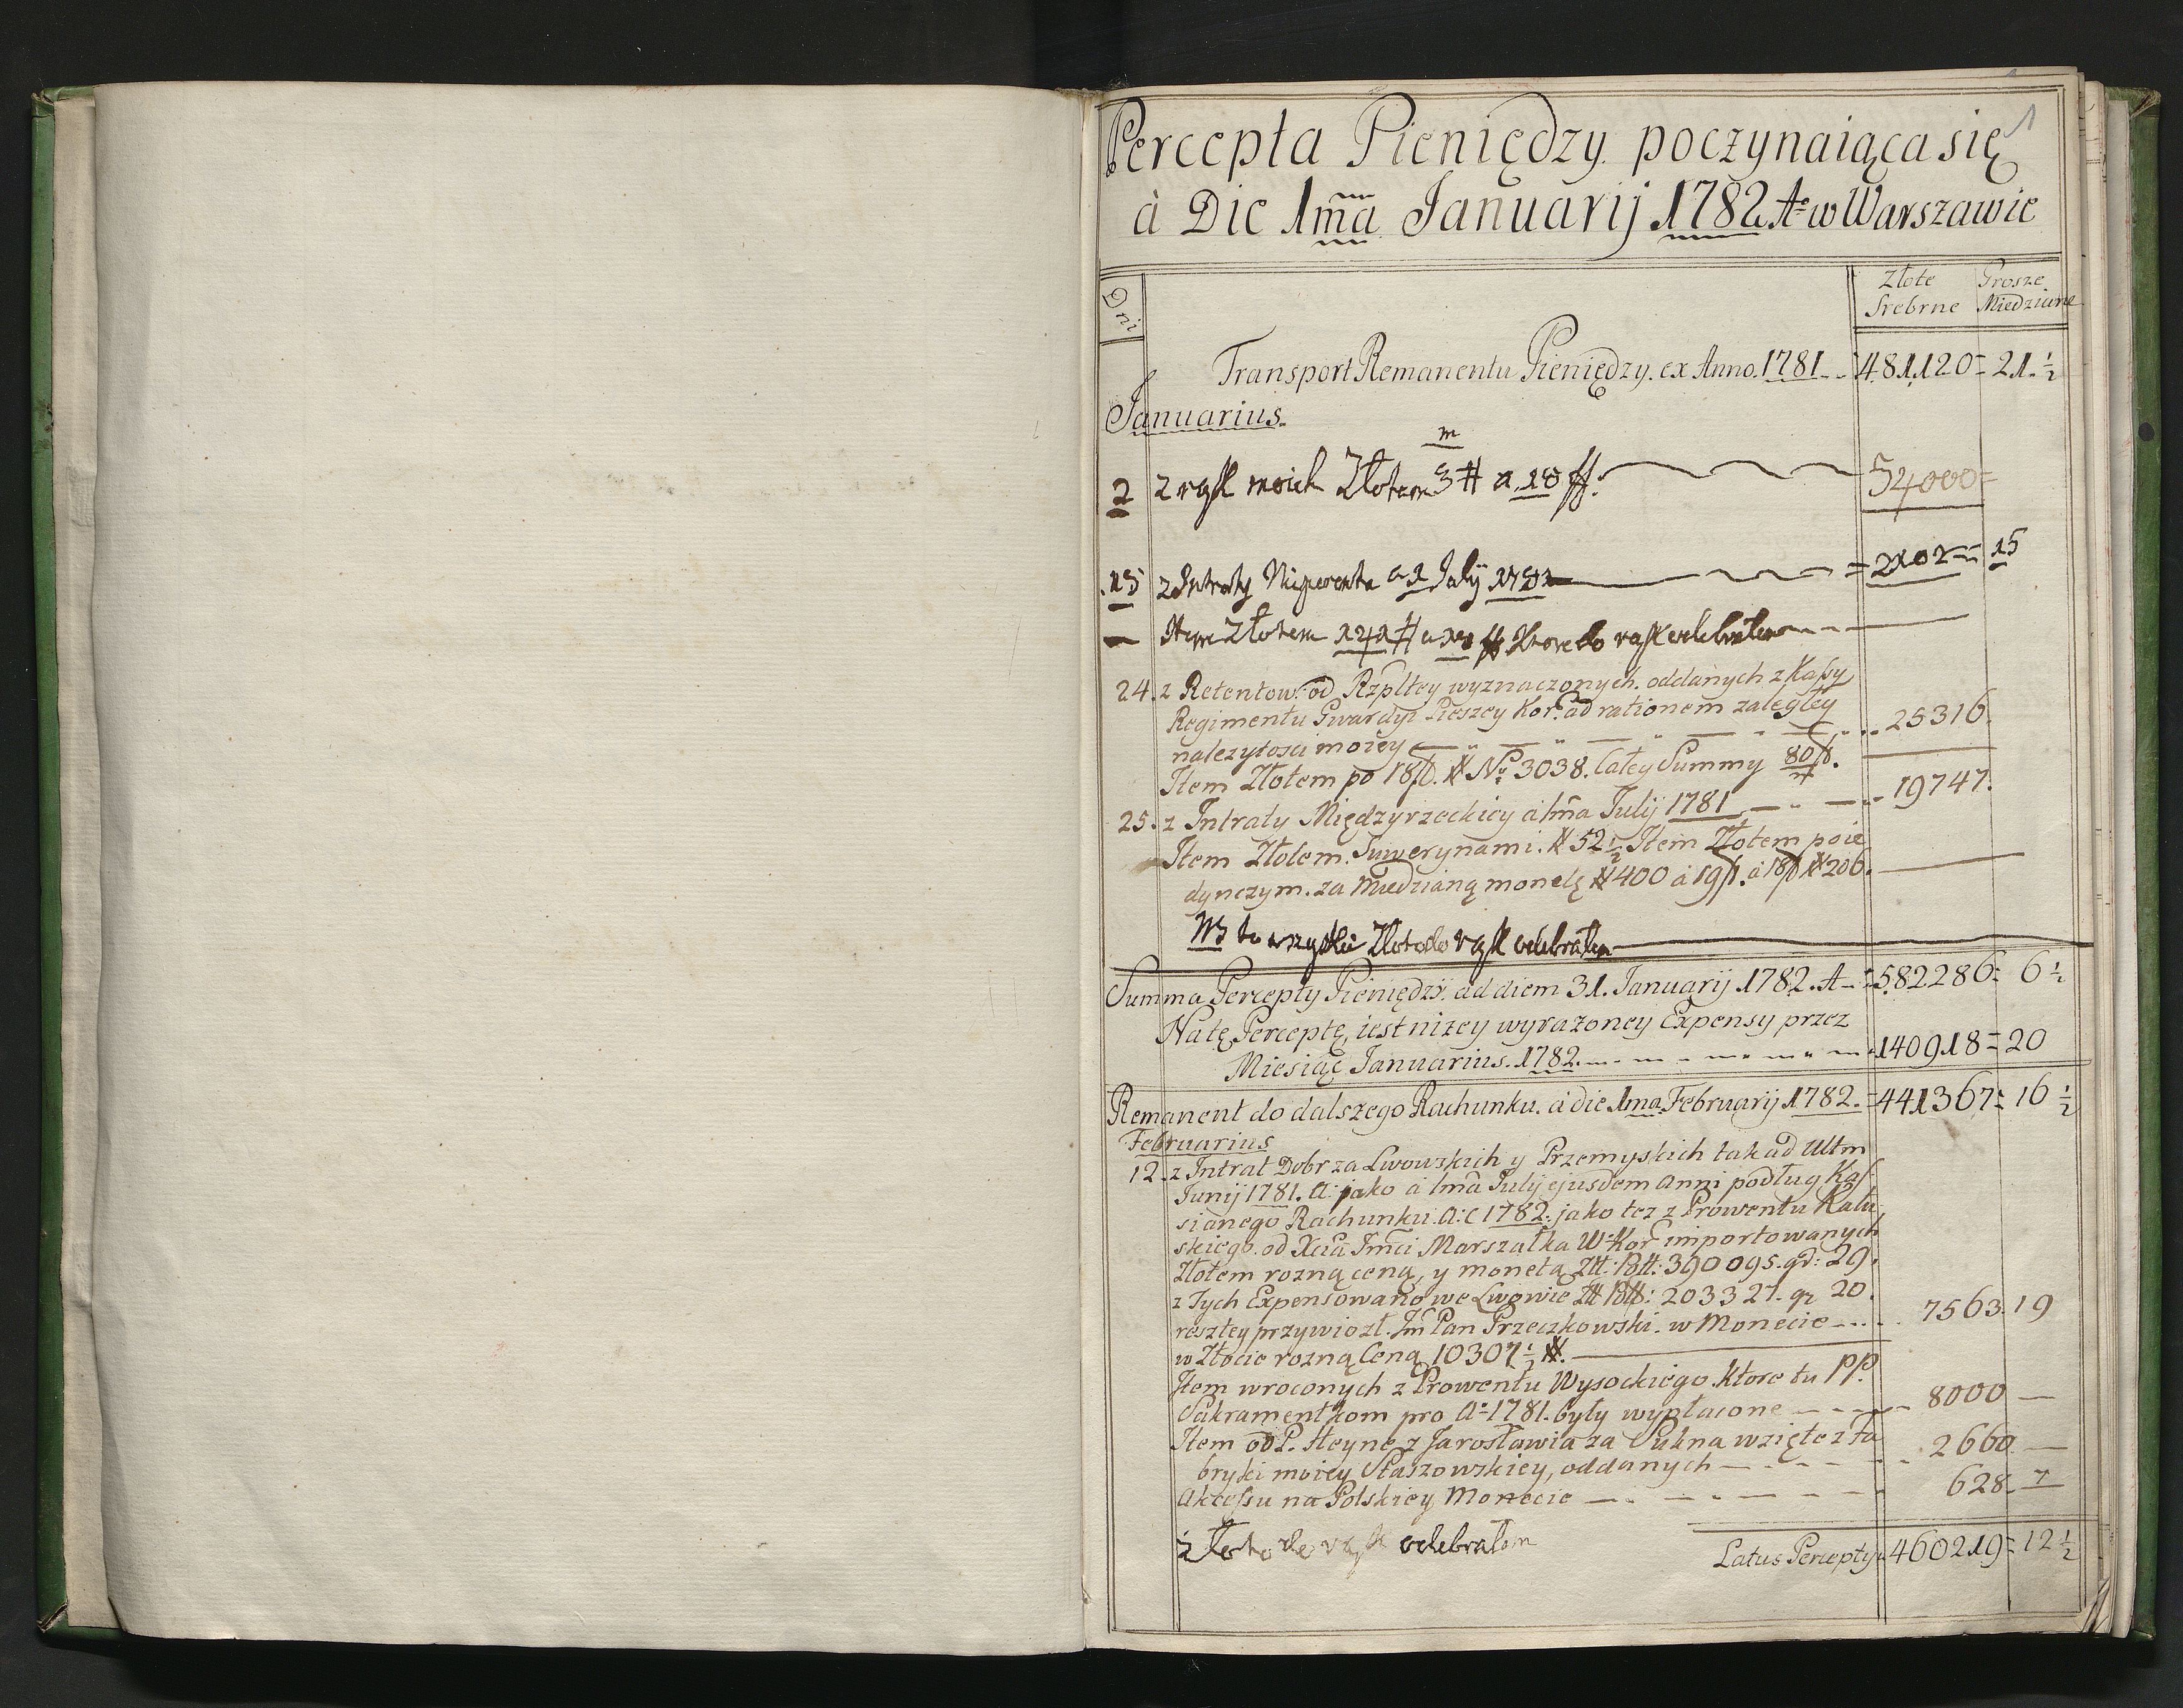 1
Percepta Pieniędzy poczynaiąca się
à Die 1ma Januarij 1782 Ao w Warszawie
Dni
Złote Grosze
Srebrne Miedziane
Transport Remanentu Pieniędzy. ex Anno. 1781 481120 = 21. ½
Januarius.
m
2 z rąk moich Złotem 3 # a 18 ff. 54000 =
15 z Intraty a 1 Julij 1781 = 2102 = 15
Item Złotem 141 # a 18 ff ktore do rąk odebrałem
24. z Retentow. od Rzpltey wyznaczonych. oddanych z Kassy
Regimentu Gwardyi Pieszey Kor. ad rationem zaległey
należytosci moiey 25316.
Item Złotem po 18 fl. # No 3038. Całey Summy 80/m fl.
25. z Intraty Międzyrzeckiey a 1ma Julij 1781 19747.
Item Złotem. Suwerynami. # 52½ Item Złotem poie
dynczym. za Miedzianą monetę # 400 à 19 fl. à 18 fl # 206.
NB to wszystko Złoto do rąk odebrałem
Summa Percepty Pieniędzy. ad diem 31. Januarij 1782. A 582286 = 6 ½
Na tę Perceptę, iest niżey wyrażoney Expensy przez
Miesiąc Januarius. 1782. 140918 = 20
Remanent do dalszego Rachunku. à die 1ma Februarij 1782. = 441367 = 16 ½
Februarius
12. z Intrat Dobr za Lwowskich y Przemyskich tak ad Ultm
Junij 1781. A: jako à 1ma Julij ejusdem Anni podług Kas
sianego Rachunku. A: C 1782. jako tez z Prowentu Kału
skiego. od Xcia Jmci Marszałka W. Kor importowanych
Złotem rozną ceną, y monetą Złt: Pltt: 390095. gr: 29.
z Tych Expensowano we Lwowie Złt Pltt: 203327. gr 20.
resztey przywiozł. Jm Pan Przeczkowski. w Monecie 7563. 19
w Złocie rozną Ceną 10307½ #.
Item wroconych z Prowentu Wysockiego. Ktore tu PP.
Sakramentkom pro Ao 1781. były wypłacone 8000 —
Item od P. Heyne z Jarosławia za Sukna wzięte z Fa
bryki moiey Staszowskiey, oddanych 2660 —
Akcessu na Polskiey Monecie 628. 7
Złoto do rąk odebrałem
Latus Percepty 460219 = 12 ½